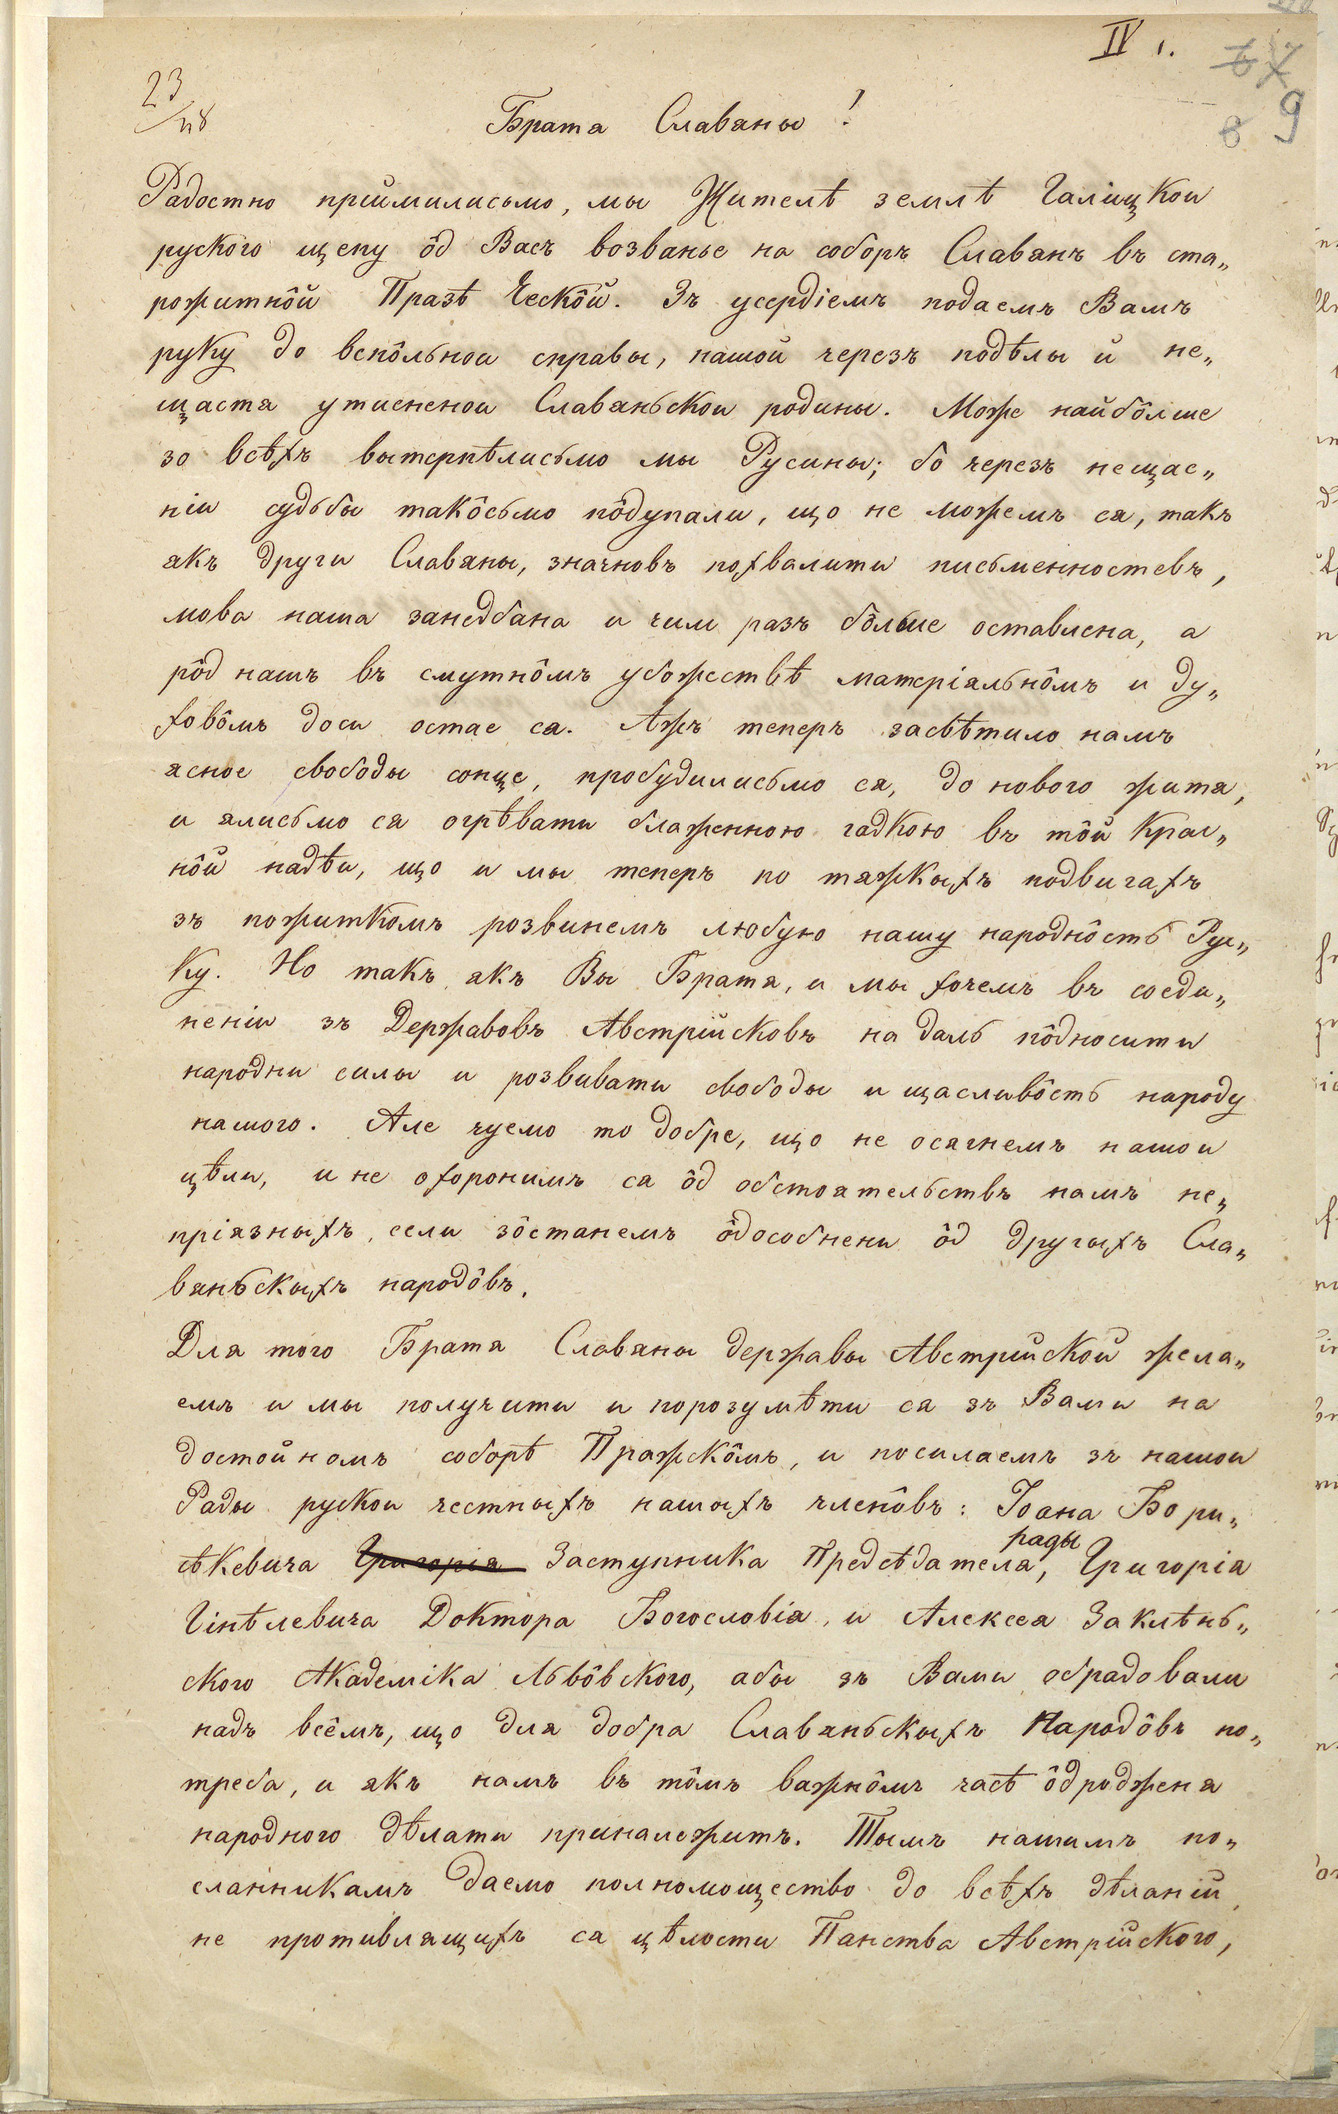 IV 1.
67
23/48
8 9
Братя Славяны!
Радостноприймилисьмо, мы Жителѣ землѣ Галицкои
руского щепу ôд Васъ возванье на соборъ Славянъ въ ста„
рожитнôй Празѣ Ческôй. Зъ усердіемъ подаемъ Вамъ
руку до вспôльнои справы, нашой черезъ подѣлы й не„
щастя утисненои Славяньскои родины. Може найбôльше
зо всѣхъ вытерпѣлисьмо мы Русины; бо черезъ нещас„
ніи судьбы такôсьмо пôдупали, що не можемъ ся, такъ
якъ други Славяны, значновъ похвалити письменностевъ,
мова наша занедбана и чим разъ бôльше оставлена, а
рôд нашъ въ смутнôмъ убожествѣ матеріяльнôмъ и ду„
ховôмъ доси остае ся. Ажъ теперъ засвѣтило намъ
ясное свободы сонце, пробудилисьмо ся, до нового житя,
и ялисьмо ся огрѣвати блаженною гадкою въ тôй крас„
нôй надѣи, що и мы теперъ по тяжкыхъ подвигахъ
зъ пожиткомъ розвинемъ любую нашу народнôсть Рус„
ку. Но такъ якъ Вы Братя, и мы хочемъ въ соеди„
неніи зъ Державовъ Австрійсковъ на даль пôдносити
народни силы и розвивати свободы и щасливôсть народу
нашого. Але чуемо то добре, що не осягнемъ нашои
цѣли, и не охоронимъ ся ôд обстоятельствъ намъ не„
пріязныхъ, если зôстанемъ ôдособнени ôд другыхъ Сла„
вяньскыхъ народôвъ.
Для того Братя Славяны державы Австрийской жела„
емъ и мы получити и порозумѣти ся зъ Вами на
достойномъ соборѣ Пражскôмъ, и посилаемъ зъ нашои
Рады руской честныхъ нашыхъ членôвъ: Іоана Бори„
сѣкевича Григорія Заступника Предсѣдателя рады, Григорія
Гінѣлевича Доктора Богословія, и Алексея Заклѣнь„
ского Академіка Львôвского, абы зъ Вами обрадовали
надъ всѣмъ, що для добра Славяньскыхъ Народôвъ по„
треба, и якъ намъ въ тôмъ важнôмъ часѣ ôдродженя
народного дѣлати приналежитъ. Тымъ нашимъ по„
сланникамъ даемо полномощество до всѣхъ дѣланій
не противлящихъ ся цѣлости Панства Австрійского,